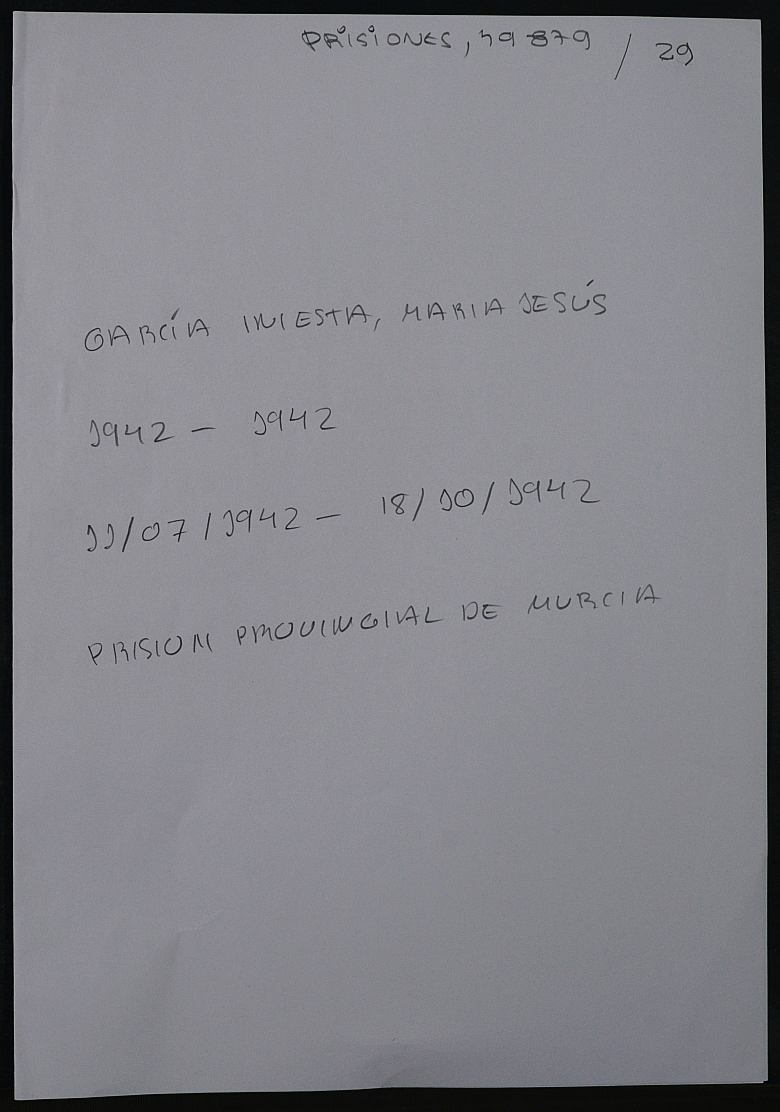 PRISIONES, 49879 / 29
GARCÍA INIESTA, MARIA JESÚS
1942 - 1942
11/07/1942 - 18/10/1942
PRISION PROVINCIAL DE MURCIA